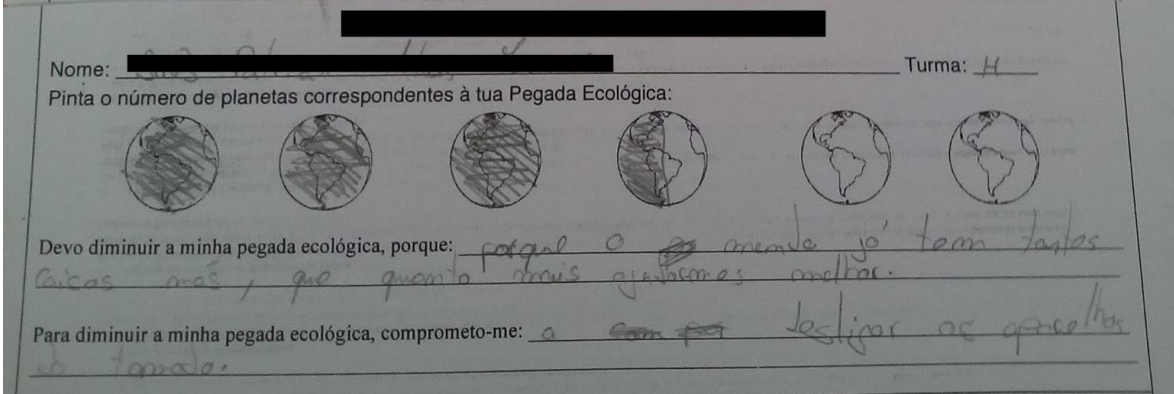 Nome: Turma: H
Pinta o número de planetas correspondentes à tua Pegada Ecológica:
Devo diminuir a minha pegada ecológica, porque: porque o mundo já tem tantas
coisas más, que quanto mais ajudarmos melhor.
Para diminuir a minha pegada ecológica, comprometo-me: a desligar os aparelhos
da tomada.